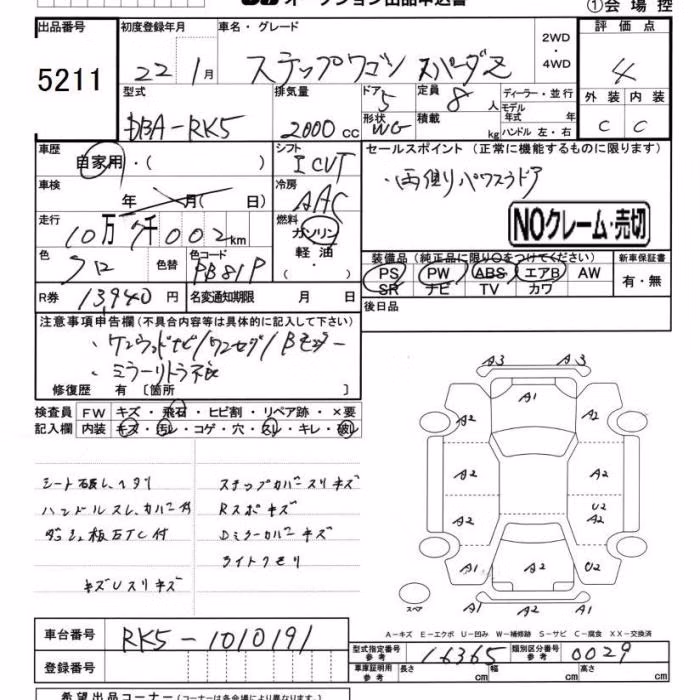 オークション出品申込書
①会場控
出品番号 初度登録年月 車名・グレード 2WD・4WD 評価点
5211 22 1月 ステップワゴン スパーダZ 4
型式 排気量 ドア 定員 ディーラー・並行 外装 内装
DBA-RK5 2000cc 5 8人 モデル年式 年 C C
形状 WG 積載 kg ハンドル 左・右
車歴 シフト セールスポイント (正常に機能するものに限ります)
自家用・( ) I CVT ・両側パワスラドア
車検 年 月( 日) 冷房 AAC
NOクレーム・売切
走行 10万 7千002km 燃料 ガソリン 軽油 ・( )
装備品(純正品に限り○をつけてください) 新車保証書
色 クロ 色替 色コード PB81P
PS PW ABS エアB AW 有・無
SR ナビ TV カワ
R券 13,940円 名変通知期限 月 日 後日品
注意事項申告欄(不具合内容等は具体的に記入して下さい)
・ケンウッドナビ/ワンセグ/Bモニター
・ミラーリトラ不良
修復歴 有 〔箇所 〕
検査員 FW キズ・飛石・ヒビ割・リペア跡・×要
記入欄 内装 キズ・汚レ・コゲ・穴・スレ・キレ・破レ
シート破レ、ヘタリ ステップカバースリキズ
ハンドルスレ、カバー付 Rスポキズ
ダッシュ板ETC付 Dミラーカバーキズ
ライトクモリ
キズUスリキズ
A3 A3
A1
A2 A2
A2 A2
A2 U2 A2
A1 A2 U2
A1 A2 A2
スペア
A-キズ E-エクボ U-凹み W-補修跡 S-サビ C-腐食 XX-交換済
車台番号 RK5-1010191
型式指定番号 参考 16365 類別区分番号 参考 0029
登録番号 車庫証明用 参考 長さ cm 幅 cm 高さ cm
希望出品コーナー(コーナーは各会場により異なります)